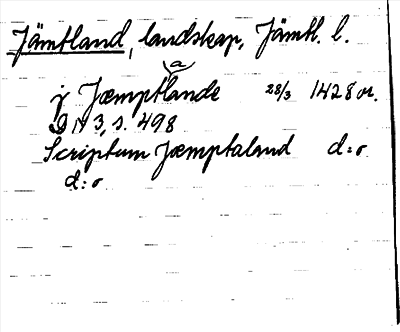 Jämtland, landskap, Jämtl. l.
(a)
j Jæmptlande 28/3 1428 or.
DN 3, s. 498
Scriptum Jæmptaland d:o
d:o